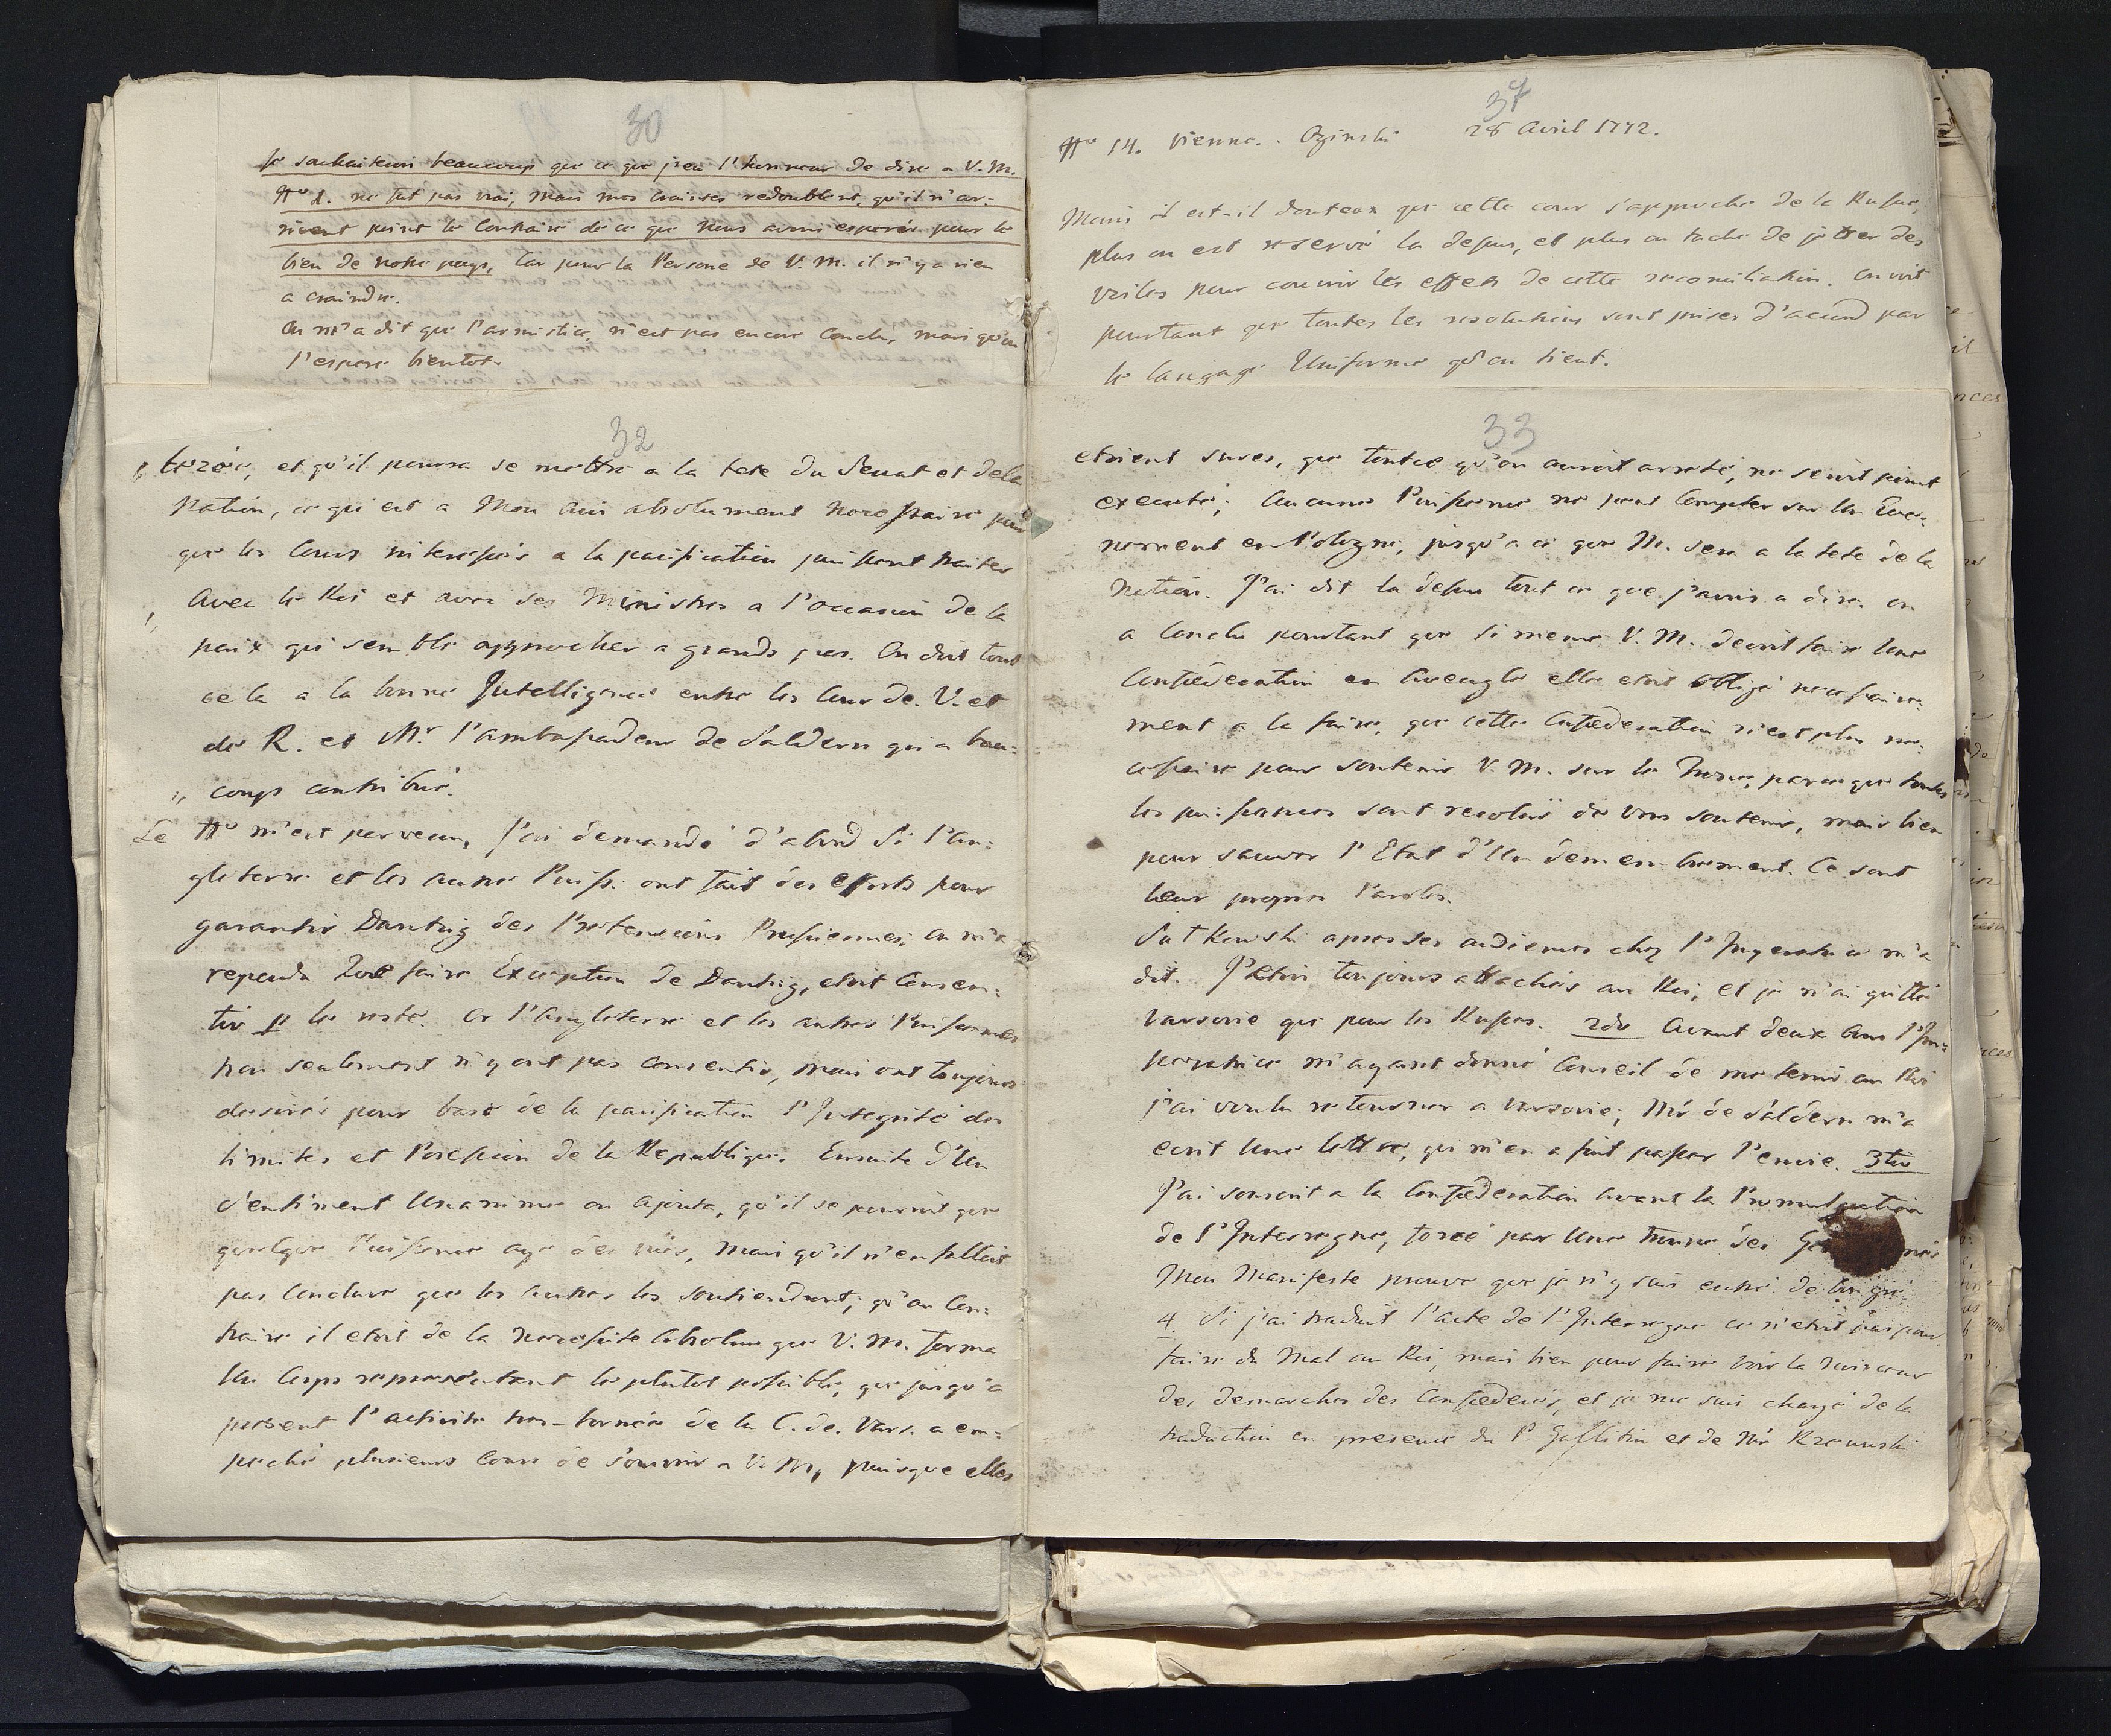 30
Je souhaiterai beaucoup que ce que j'eu l'honneur de dire a V. M.
Nro 1. ne fut pas vrai, mais mes craintes redoublent, qu'il n'ar=
rivent point le Contraire de ce que nous avons esperés pour le
bien de notre pays, Car pour la Persone de V. M. il n'y a rien
a craindre.
On m'a dit que l'armistice, n'est pas encore Conclu, mais qu'on
l'espere bientot.
32
et qu'il pourra se mettre a la tete du Senat et dela
Nation, ce qui est a Mon avis absolument necessaire pour
que les Cours interessés a la pacification puissent traiter
Avec le Roi et avec ses Ministres a l'occasion de la
paix qui semble approcher a grands pas. On doit tout
cela a la bonne Intelligence entre les Cour de. V. et
de R. et Mr. l'ambassadeur de Saldern qui a beau=
coups contribué.
Le Nro m'est parvenu, J'ai demandé d'abord Si l'An=
gleterre et les autre Puiss: ont fait des efforts pour
garantir Dantzig des Pretensions Prussiennes; on m'a
repondu que faire Exception de Dantzig, etoit Consen=
tir pr le reste. Or l'Angleterre et les autres Puissances
non seulement n'y ont pas Consentie, mais ont toujours
desirés pour base de la pacification l'Integrité des
limites et Possession de la Republique. Ensuite d'Un
Sentiment Unanime on ajouta, qu'il se pourroit que
quelque Puissance aye des vües, Mais qu'il n'en falloit
pas Conclure que les Autres les Soutiendront; qu'au Con=
traire il etoit de la necessité Absolue que V. M. forma
Un Corps representant le plutot possible, que jusqu'a
present l'activité tres-bornée de la C. de. Vars. a em=
peché plusieurs Cours de s'ouvrir a V. M, puisque elles
37
Nro 14. Vienne. Oginski 28 Avril 1772.
Moins il est-il douteux que cette cour s'approche de la Russie,
plus on est reservé la dessus, et plus on tache de jetter des
voiles pour couvrir les effets de cette reconciliation. On voit
pourtant que toutes les resolutions sont prises d'acord par
le langage Uniforme qu'on tient.
33
etoient sures, que tout ce qu'on auroit arreté, ne seroit point
executé; Aucune Puissance ne peut Compter sur Un Eve=
nement en Pologne, jusqu'a ce que M. sera a la tete de la
Nation. J'ai dit la dessus tout ce que j'avois a dire. on
a Conclu pourtant que Si meme V. M. devoit faire Une
Confœderation en Aveugle elle etoit obligé necessaire=
ment a la faire, que cette Confœderation n'est plus ne=
cessaire pour soutenir V. M. sur le Trone, parceque toutes
les puissances sont resolus de vous soutenir, mais bien
pour sauver l'Etat d'Un demembrement. Ce sont
leur propres Paroles.
Sulkowski apres ses audiences chez l'Imperatrice m'a
dit. J'etois toujours attachés au Roi, et je n'ai quitté
Varsovie que pour les Russes. 2do Avant deux Ans l'Im=
peratrice m'ayant donné Conseil de me tenir au Roi
j'ai voulu retourner a Varsovie; Mr de Saldern m'a
ecrit Une lettre, qui m'en a fait passer l'envie. 3tio
J'ai souscrit a la Confœderation Avant la Promulgation
de l'Interregne, forcé par Une
Mon Manifeste prouve que je n'y suis entré de bon gré.
4. Si j'ai traduit l'acte de l'Interregne ce n'etoit pas pour
faire du Mal au Roi, mais bien pour faire voir la noirceur
des demarches des Confœderés, et je me suis chargé de la
traduction en presence du P. Gallitzin et de Mr Rzewuski